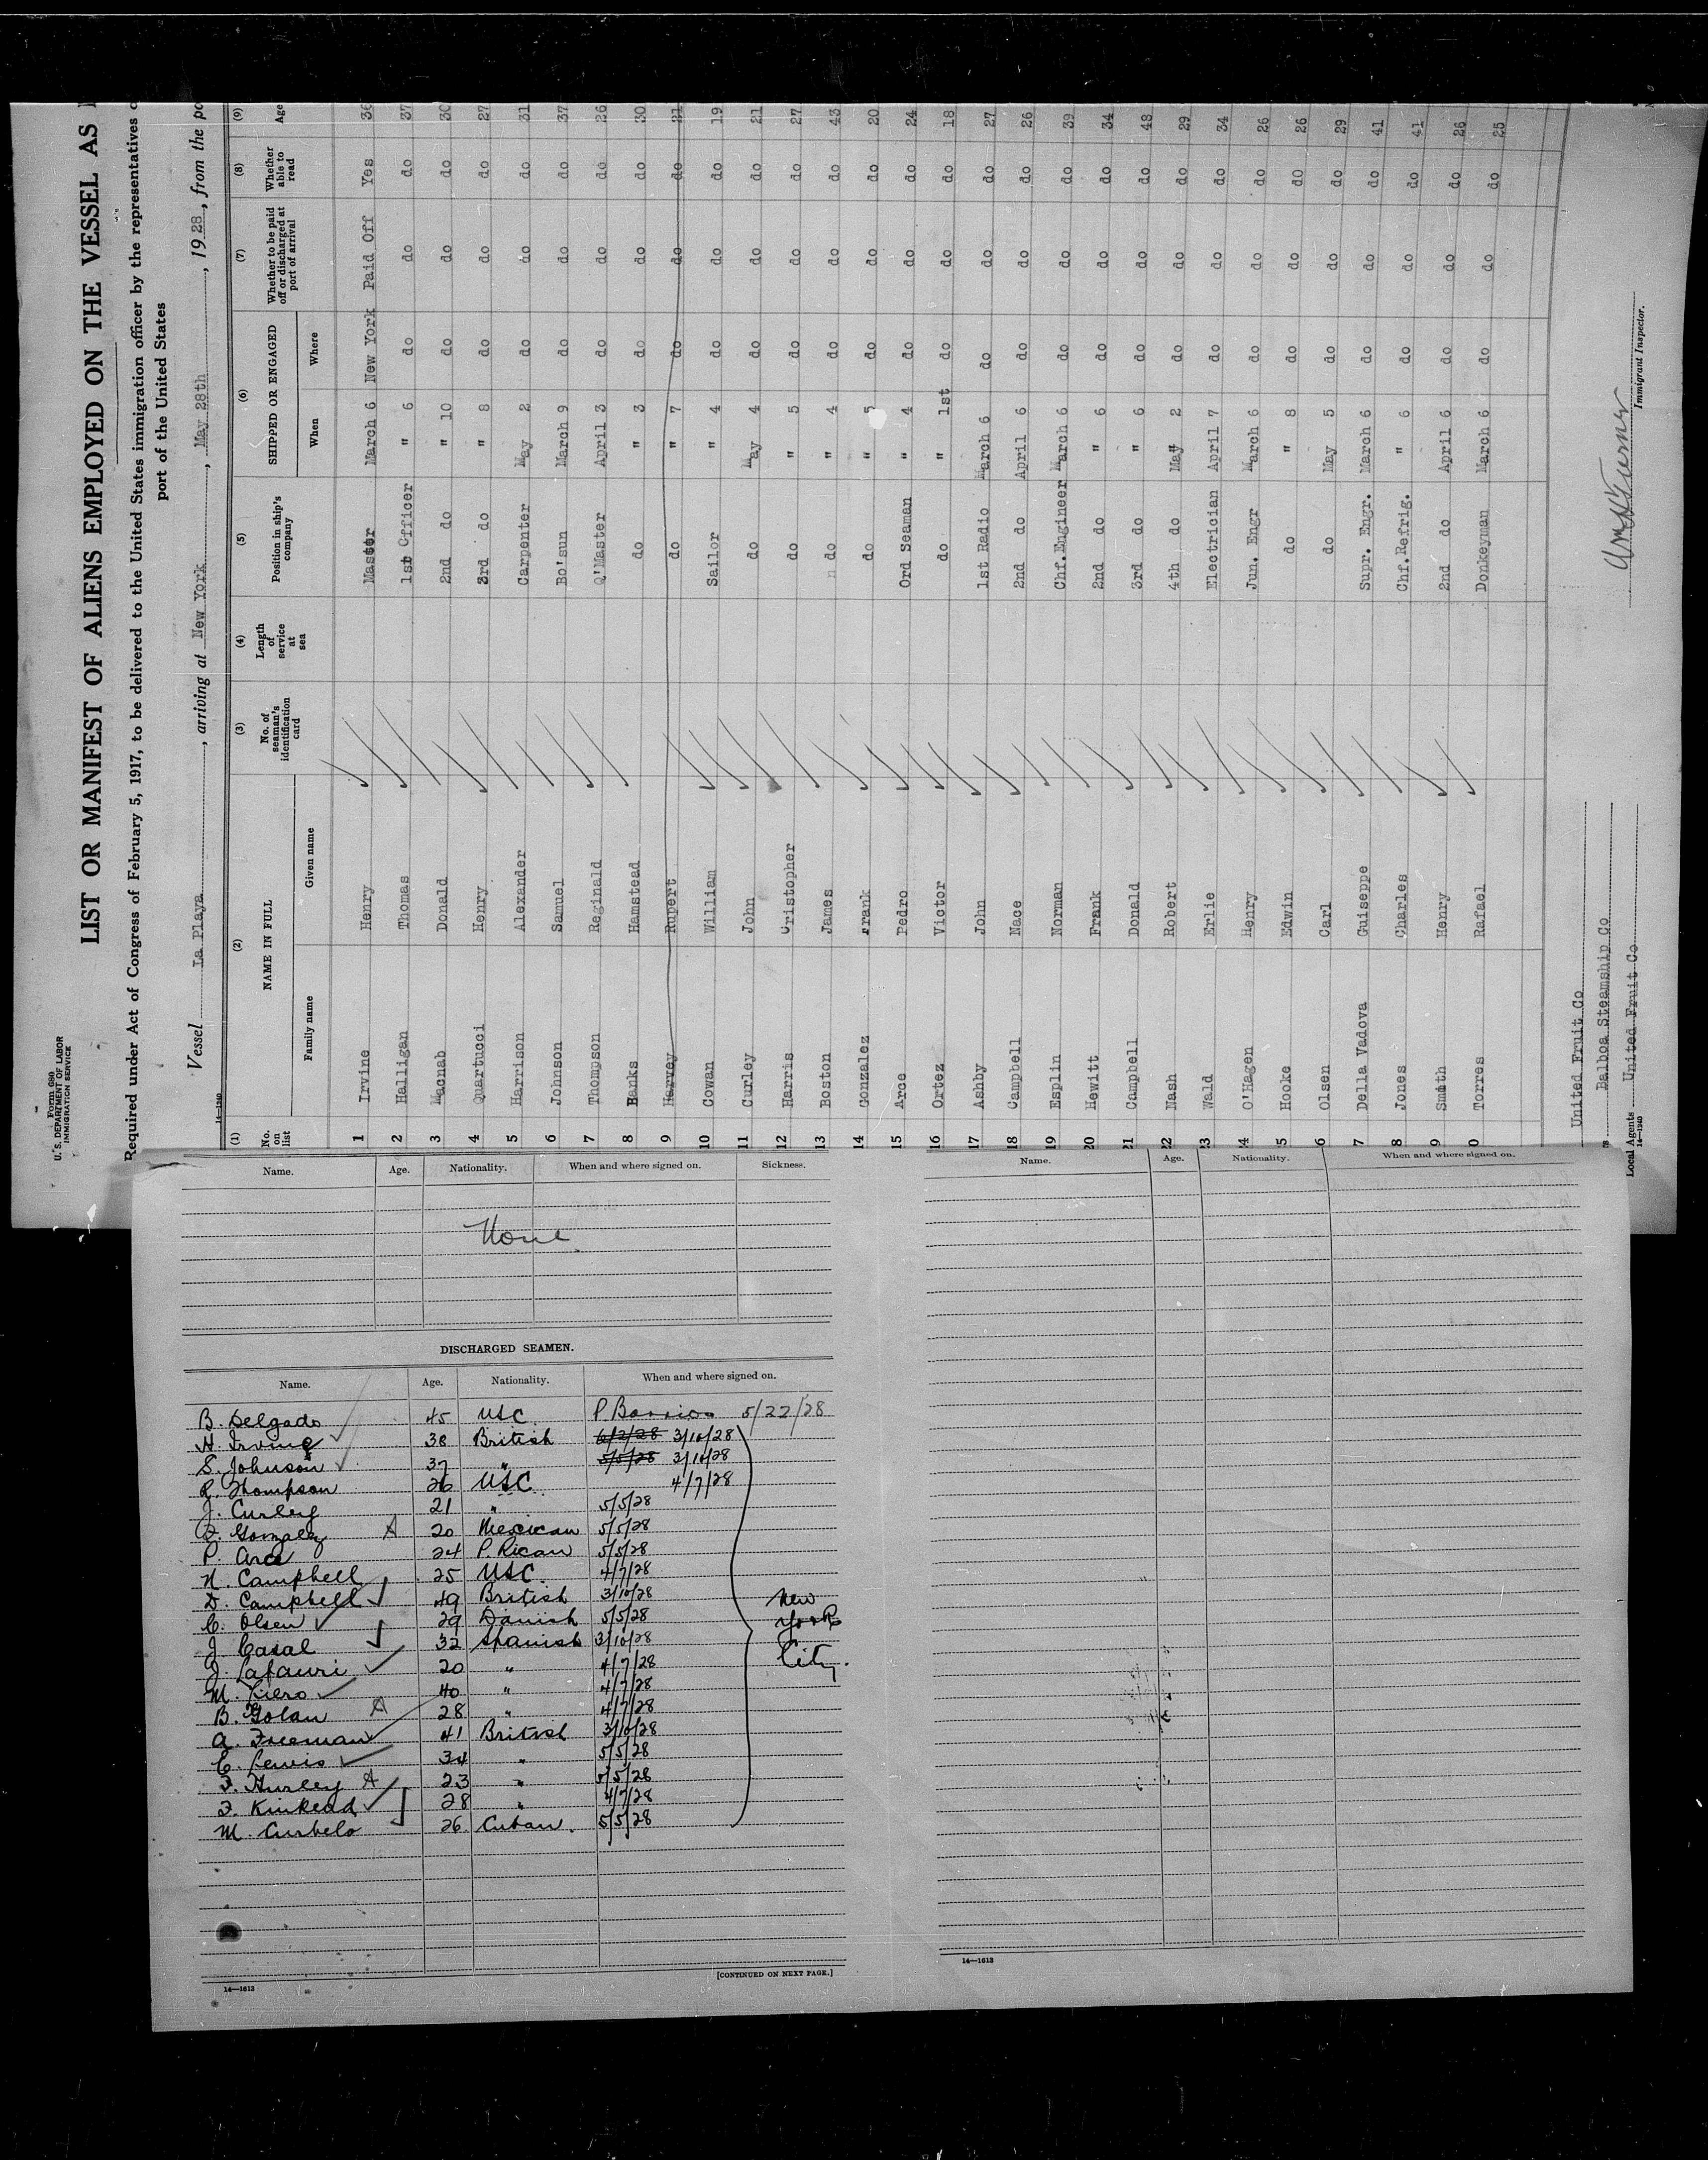 Form 680
U. S. DEPARTMENT OF LABOR
IMMIGRATION SERVICE
LIST OR MANIFEST OF ALIENS EMPLOYED ON THE VESSEL AS
Required under Act of Congress of February 5, 1917, to be delivered to the United States immigration officer by the representatives
port of the United States
Vessel La Playa, arriving at New York, May 28th, 1928, from the po
14—1240
(1) (2) (3) (4) (5) (6) (7) (8) (9)
No. on list NAME IN FULL No. of seaman's identification card Length of service at sea Position in ship's company SHIPPED OR ENGAGED Whether to be paid off or discharged at port of arrival Whether able to read Age
Family name Given name When Where
1 Irvine Henry Master March 6 New York Paid Off Yes 36
2 Halligan Thomas 1st Officer " 6 do do do 37
3 Macnab Donald 2nd do " 10 do do do 30
4 Quartucci Henry 3rd do " 8 do do do 27
5 Harrison Alexander Carpenter May 2 do do do 31
6 Johnson Samuel Bo'sun March 9 do do do 37
7 Thompson Reginald Q'Master April 3 do do do 26
8 Banks Hamstead do " 3 do do do 30
9 Harvey Rupert do " 7 do do do 21
10 Cowan William Sailor " 4 do do do 19
11 Curley John do May 4 do do do 21
12 Harris Cristopher do " 5 do do do 27
13 Boston James do " 4 do do do 43
14 Gonzalez Frank do " 5 do do do 20
15 Arce Pedro Ord Seaman " 4 do do do 24
16 Ortez Victor do " 1st do do do 18
17 Ashby John 1st Radio March 6 do do do 27
18 Campbell Nace 2nd do April 6 do do do 26
19 Esplin Norman Chf.Engineer March 6 do do do 39
20 Hewitt Frank 2nd do " 6 do do do 34
21 Campbell Donald 3rd do " 6 do do do 48
22 Nash Robert 4th do May 2 do do do 29
23 Wald Erlie Electrician April 7 do do do 34
24 O'Hagen Henry Jun. Engr March 6 do do do 26
5 Hooke Edwin do " 8 do do do 26
6 Olsen Carl do May 5 do do do 29
7 Della Vadova Guiseppe Supr. Engr. March 6 do do do 41
8 Jones Charles Chf.Refrig. " 6 do do do 41
9 Smith Henry 2nd do April 6 do do do 26
0 Torres Rafael Donkeyman March 6 do do do 25
United Fruit Co
Balboa Steamship Co
Local Agents United Fruit Co
14—1240
Immigrant Inspector.
Name. Age. Nationality. When and where signed on. Sickness.
None
DISCHARGED SEAMEN.
Name. Age. Nationality. When and where signed on.
B. Delgado 45 USC. P Barrios 5/22/28
H. Irving 38 British 6/2/28 3/10/28
S. Johnson 37 " 5/5/28 3/10/28
R. Thompson 26 USC 4/7/28
J. Curley 21 " 5/5/28
F. Gonzalez A 20 Mexican 5/5/28
P. Arce 24 P. Rican 5/5/28
N. Campbell 25 USC. 4/7/28
D. Campbell 49 British 3/10/28
C. Olsen 29 Danish 5/5/28
J Casal 32 Spanish 3/10/28
J. Lafauri 20 " 4/7/28
M. Piero 40 " 4/7/28
B. Golan A 28 " 4/7/28
A. Freeman 41 British 3/10/28
C. Lewis 34 " 5/5/28
F. Hurley A 23 " 5/5/28
F. Kinkead 28 " 4/7/28
M. Curbelo 26. Cuban. 5/5/28
New
York
City.
[CONTINUED ON NEXT PAGE.]
14—1613
Name. Age. Nationality. When and where signed on.
14—1613